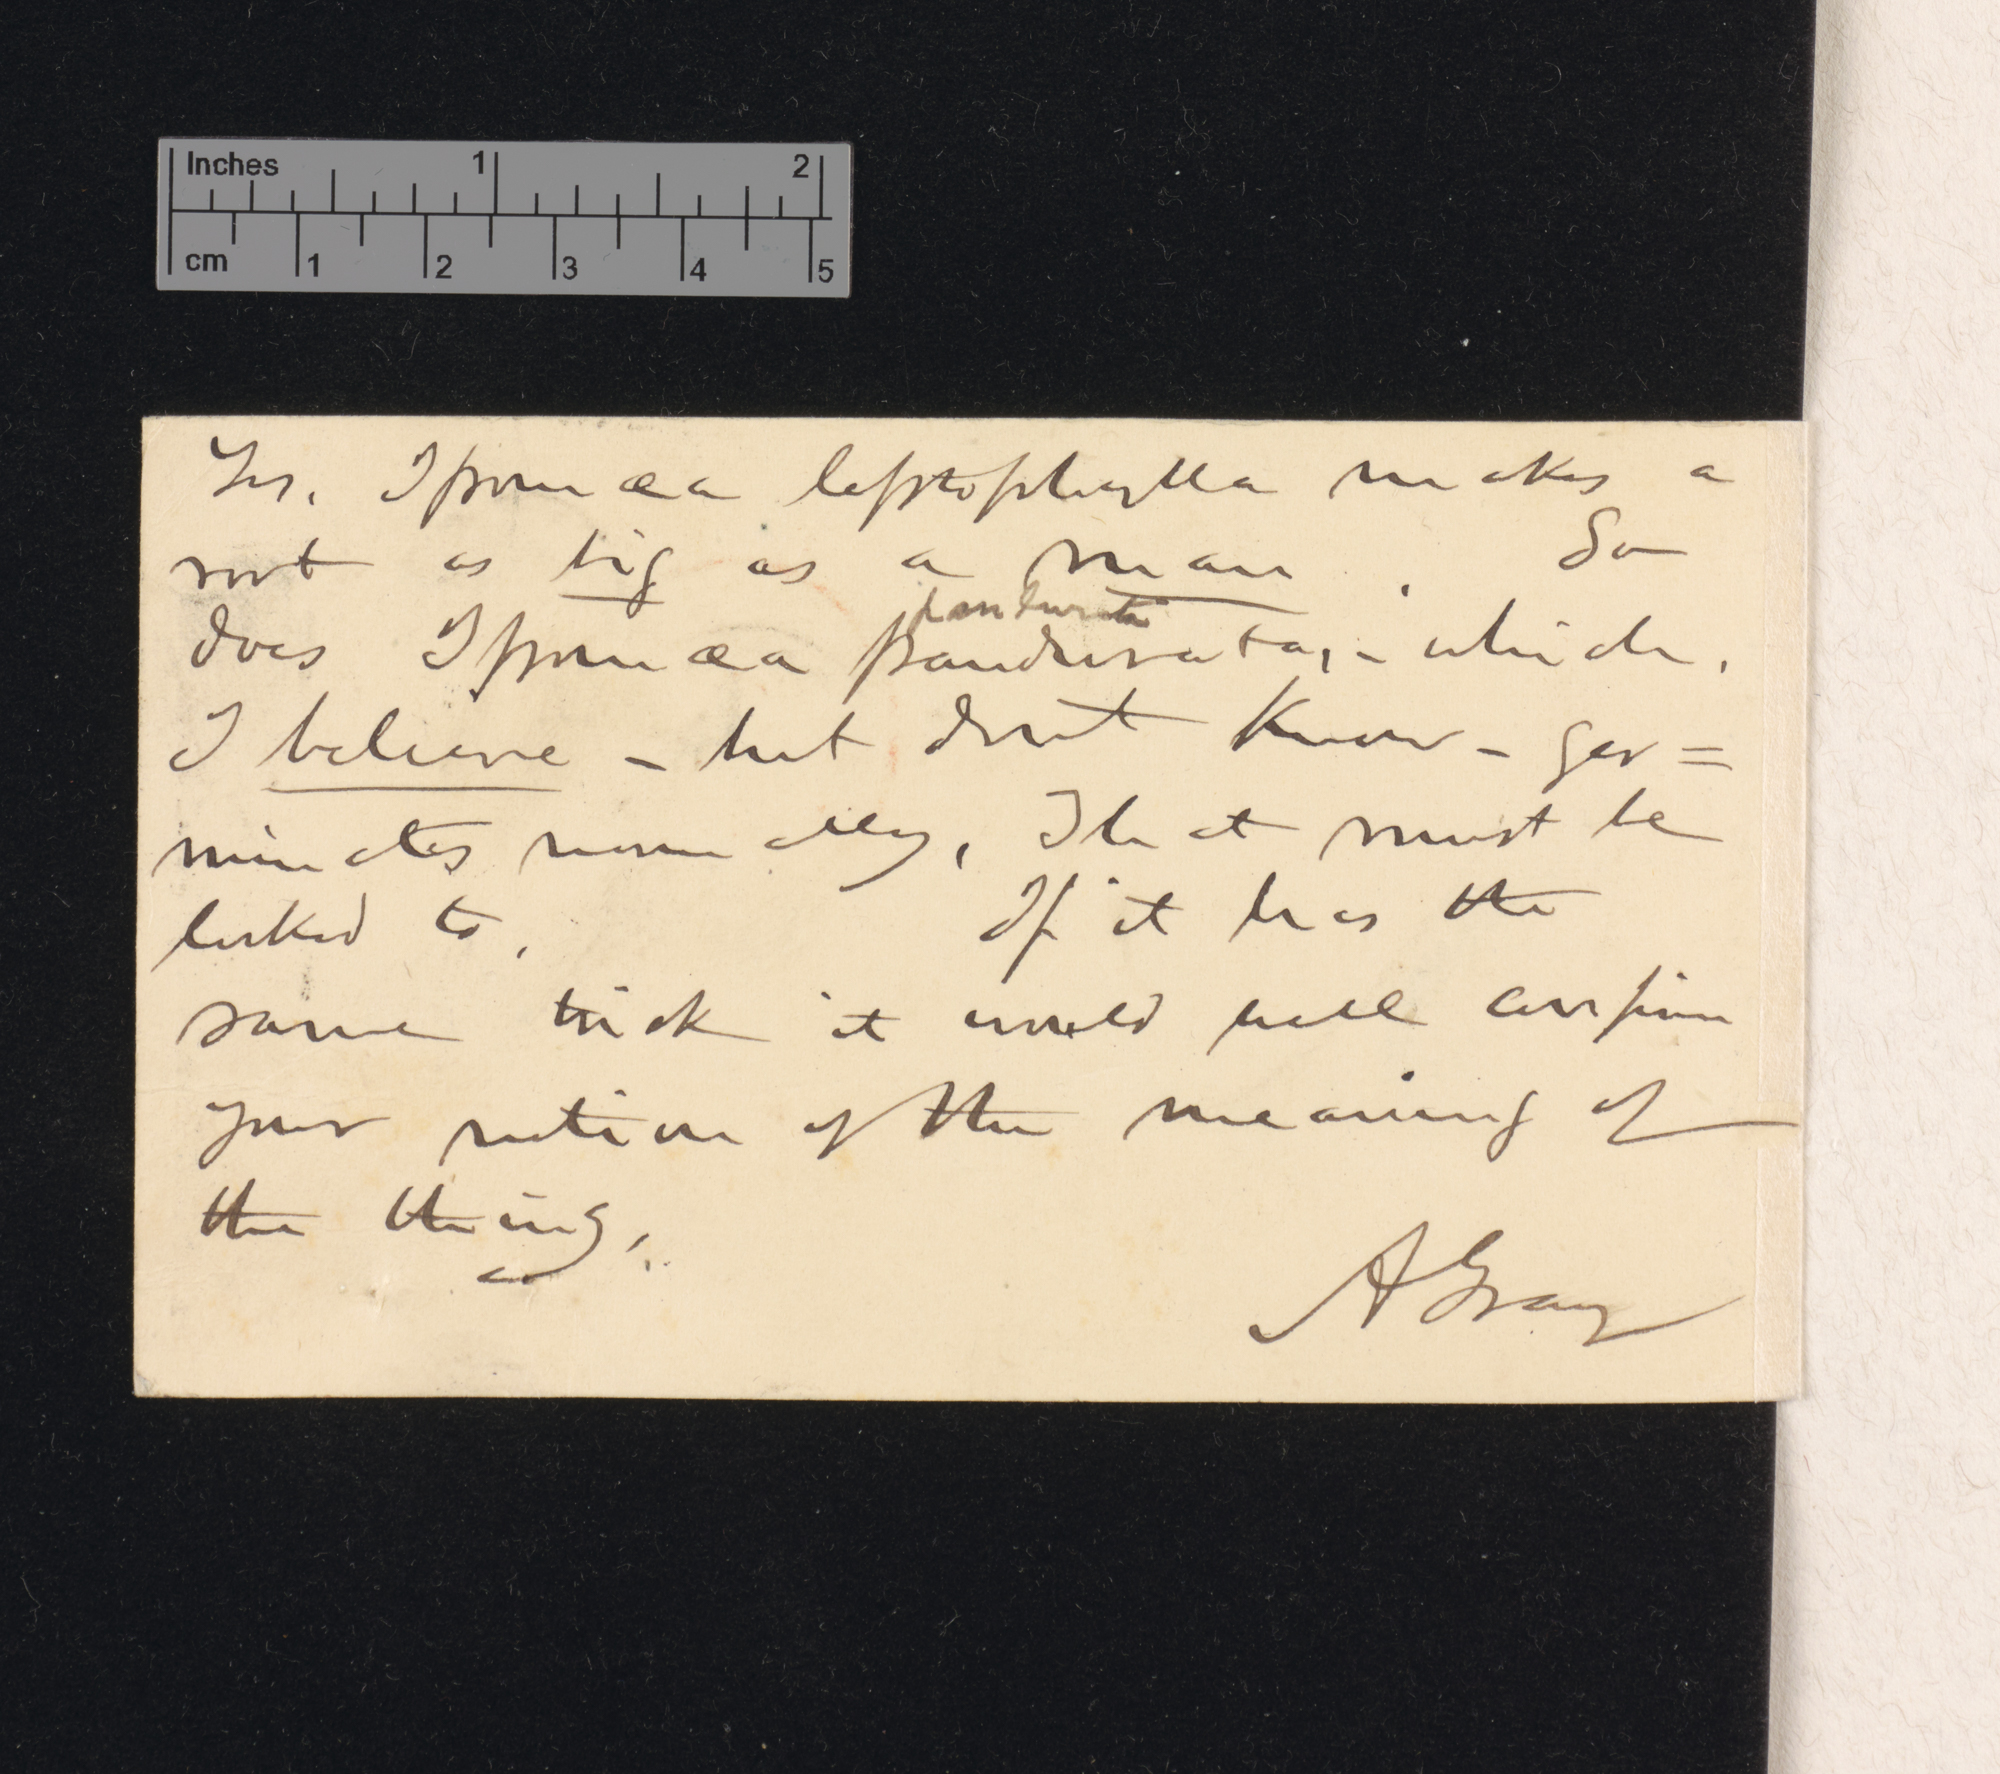 Inches 1 2
cm 1 2 3 4 5
Yes. Ipomæa leptophylla makes a
root as big as a man. So
pandurata
does Ipomæa pandurata, - which,
I believe - but don't know - ger=
minates normally, That must be
looked to. If it has the
same trick it would well confirm
your notion of the meaning of
the thing.
A Gray